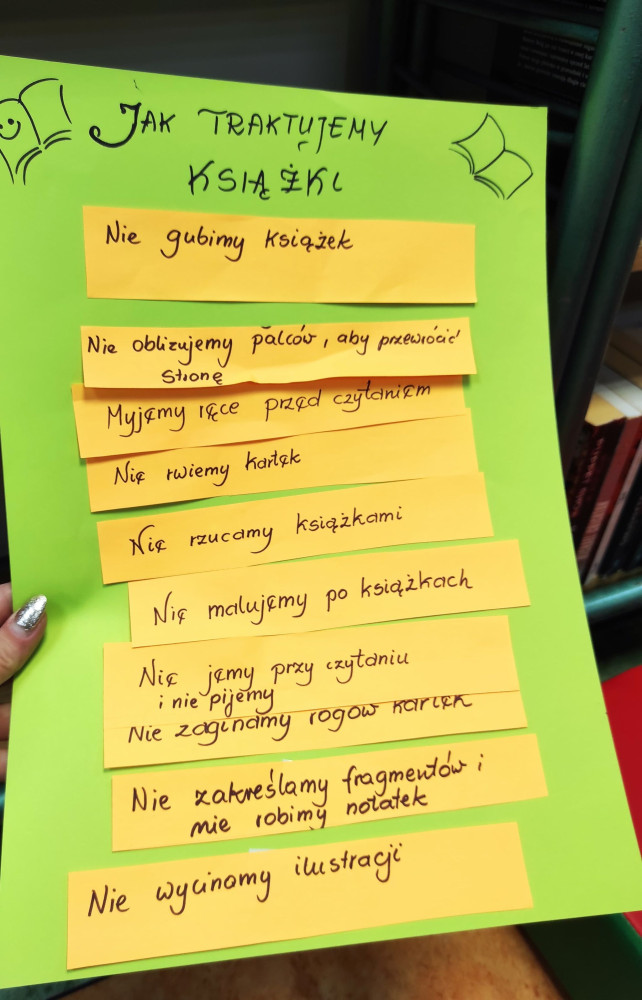 JAK TRAKTUJEMY
KSIĄŻKI
Nie gubimy książek
Nie oblizujemy palców, aby przewrócić
stronę
Myjemy ręce przed czytaniem
Nie rwiemy kartek
Nie rzucamy książkami
Nie malujemy po książkach
Nie jemy przy czytaniu
i nie pijemy
Nie zaginamy rogów kartek
Nie zakreślamy fragmentów i
nie robimy notatek
Nie wycinamy ilustracji